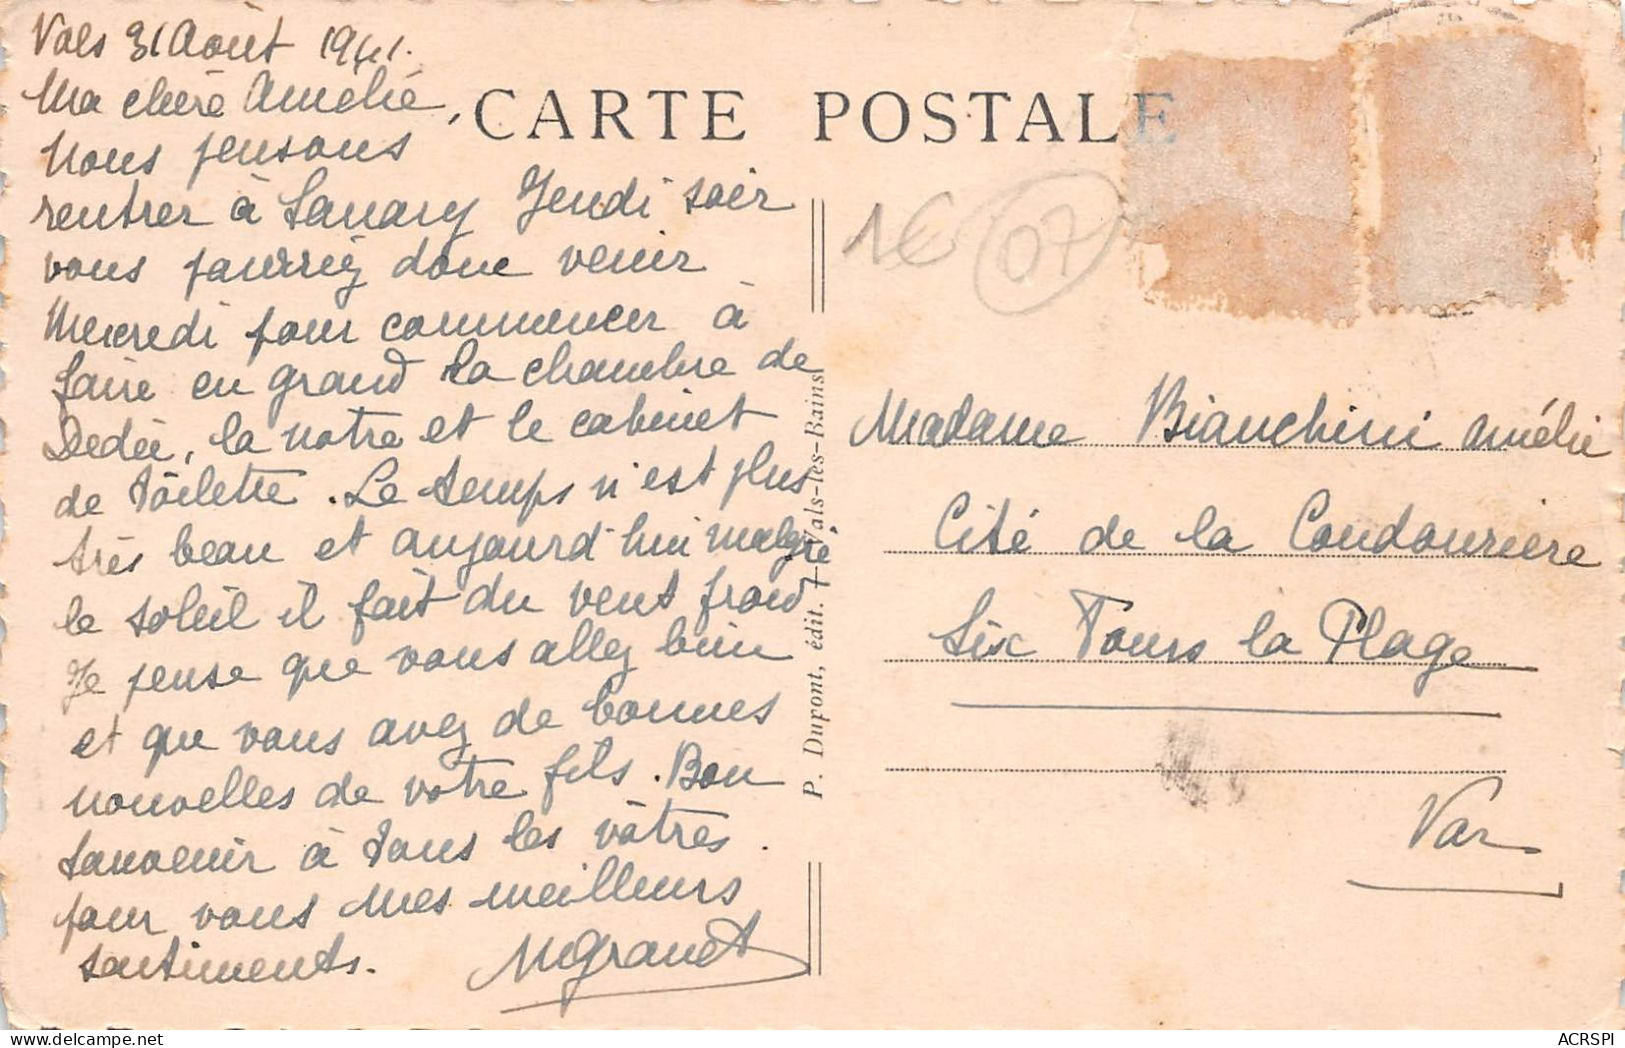 Vals 31 Août 1941.
Ma chère Amélie,
Nous pensons
rentrer à Sanary Jeudi soir
vous pourriez donc venir
Mercredi pour commencer à
faire en grand la chambre de
Dédée, la notre et le cabinet
de toilette. Le temps n'est plus
très beau et aujourd'hui malgré
le soleil il fait du vent froid
Je pense que vous allez bien
et que vous avez de bonnes
nouvelles de votre fils. Bon
souvenir à tous les vôtres.
pour vous mes meilleurs
sentiments. MGranet
CARTE POSTALE
1€ 07
P. Dupont, édit. Vals-les-Bains
Madame Bianchini Amélie
Cité de la Coudourière
Six Fours la Plage
Var
ACRSPI